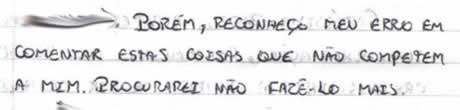 PORÉM, RECONHEÇO MEU ERRO EM
COMENTAR ESTAS COISAS QUE NÃO COMPETEM
A MIM. PROCURAREI NÃO FAZÊ-LO MAIS.